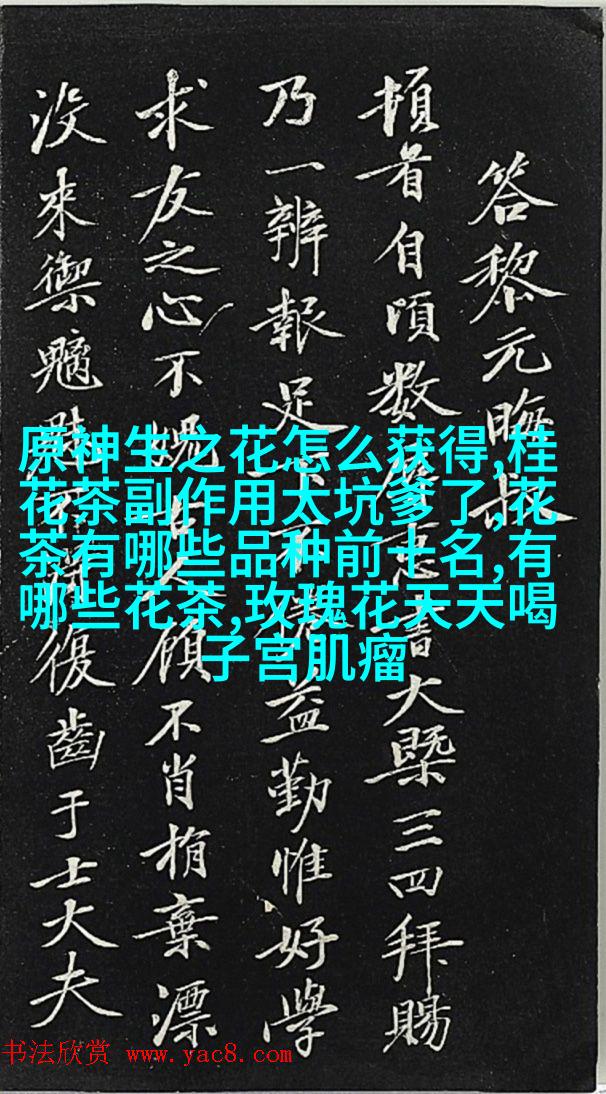 答黎元晦
頓首自頃数
大槩三四拜賜
乃一辨報足
益勤惟好學
求友之心不愧
顧不肖捐棄漂
没来禦魑魅
復齒于士大夫
原神生之花怎么获得,桂
花茶副作用太坑爹了,花
茶有哪些品种前十名,有
哪些花茶,玫瑰花天天喝
子宫肌瘤
书法欣赏 www.yac8.com